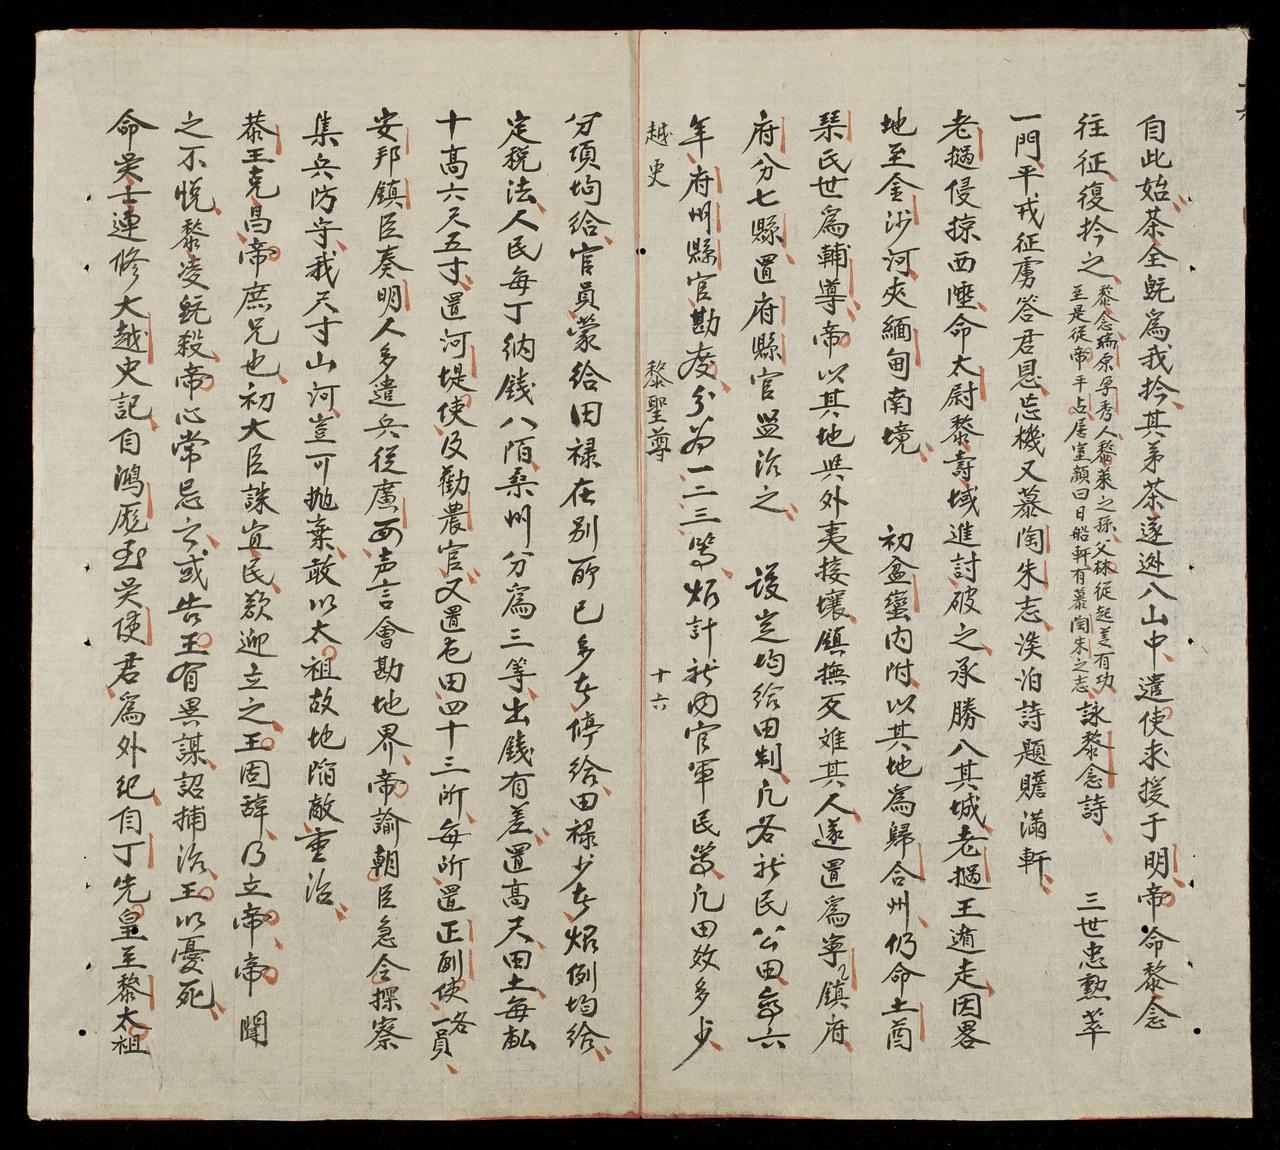 自此始茶全既爲我擒其弟茶遂逊入山中遣使求援于明帝命黎念
往征復擒之
黎念瑞原孚秀人黎萊之孫父林從起義有功
至是從帝平占居室額曰日船軒有慕陶朱之志
詠黎念詩 三世忠勲萃
一門平戎征虜答君恩忘機又慕陶朱志淡泊詩題贍滿軒
老撾侵掠西陲命太尉黎壽域進討破之承勝入其城老撾王遁走因畧
地至金沙河夾緬甸南境 初盆蠻内附以其地爲歸合州仍命土酋
琴氏世爲輔導帝以其地與外夷接壤鎮撫又难其人遂置爲寧鎮府
府分七縣置府縣官监治之 設定均給田制凡各社民公田每六
年府州縣官勘度分为一二三等炤計社内官軍民等凡田敚多少
越史 黎聖尊 十六
分項均給官員蒙給田禄在別所已多者停給田禄少者炤例均給
定税法人民每丁纳錢八陌桑州分爲三等出錢有差置高尺田土每畝
十高六尺五寸置河堤使及勸農官又置屯田四十三所每所置正副使各一員
安邦鎮臣奏明人多遣兵從廣西声言會勘地界帝諭朝臣急令探察
集兵防守我尺寸山河豈可抛棄敢以太祖故地陷敵重治
恭王克昌帝庶兄也初大臣誅宜民欲迎立之王固辞乃立帝帝聞
之不悦黎凌既殺帝心常忌之或告王有異謀詔捕治王以憂死
命吳士連修大越史記自鴻厖至吳使君爲外紀自丁先皇至黎太祖